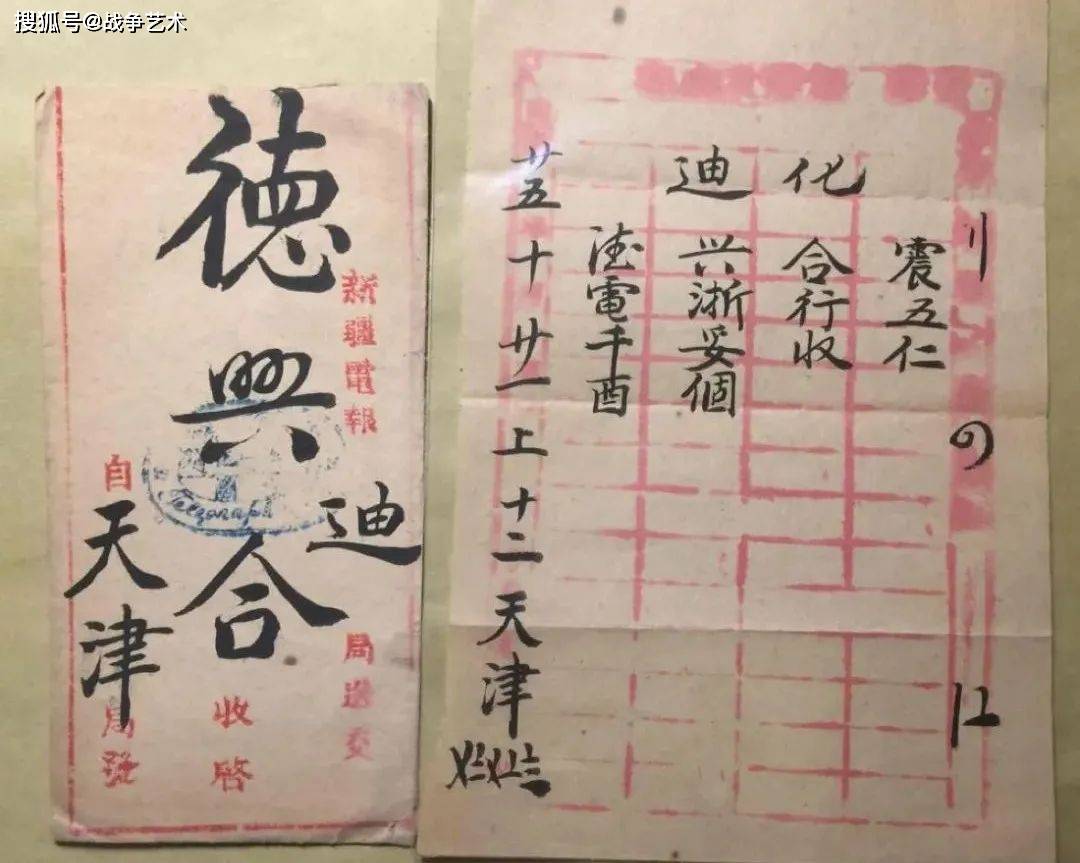 搜狐号@战争艺术
新疆電報
迪
局送交
德興合
收啓
自
天津
局發
震五仁
化合行收
迪兴浙妥個
電千酉
廿五十廿一上十二天津
Telegraph